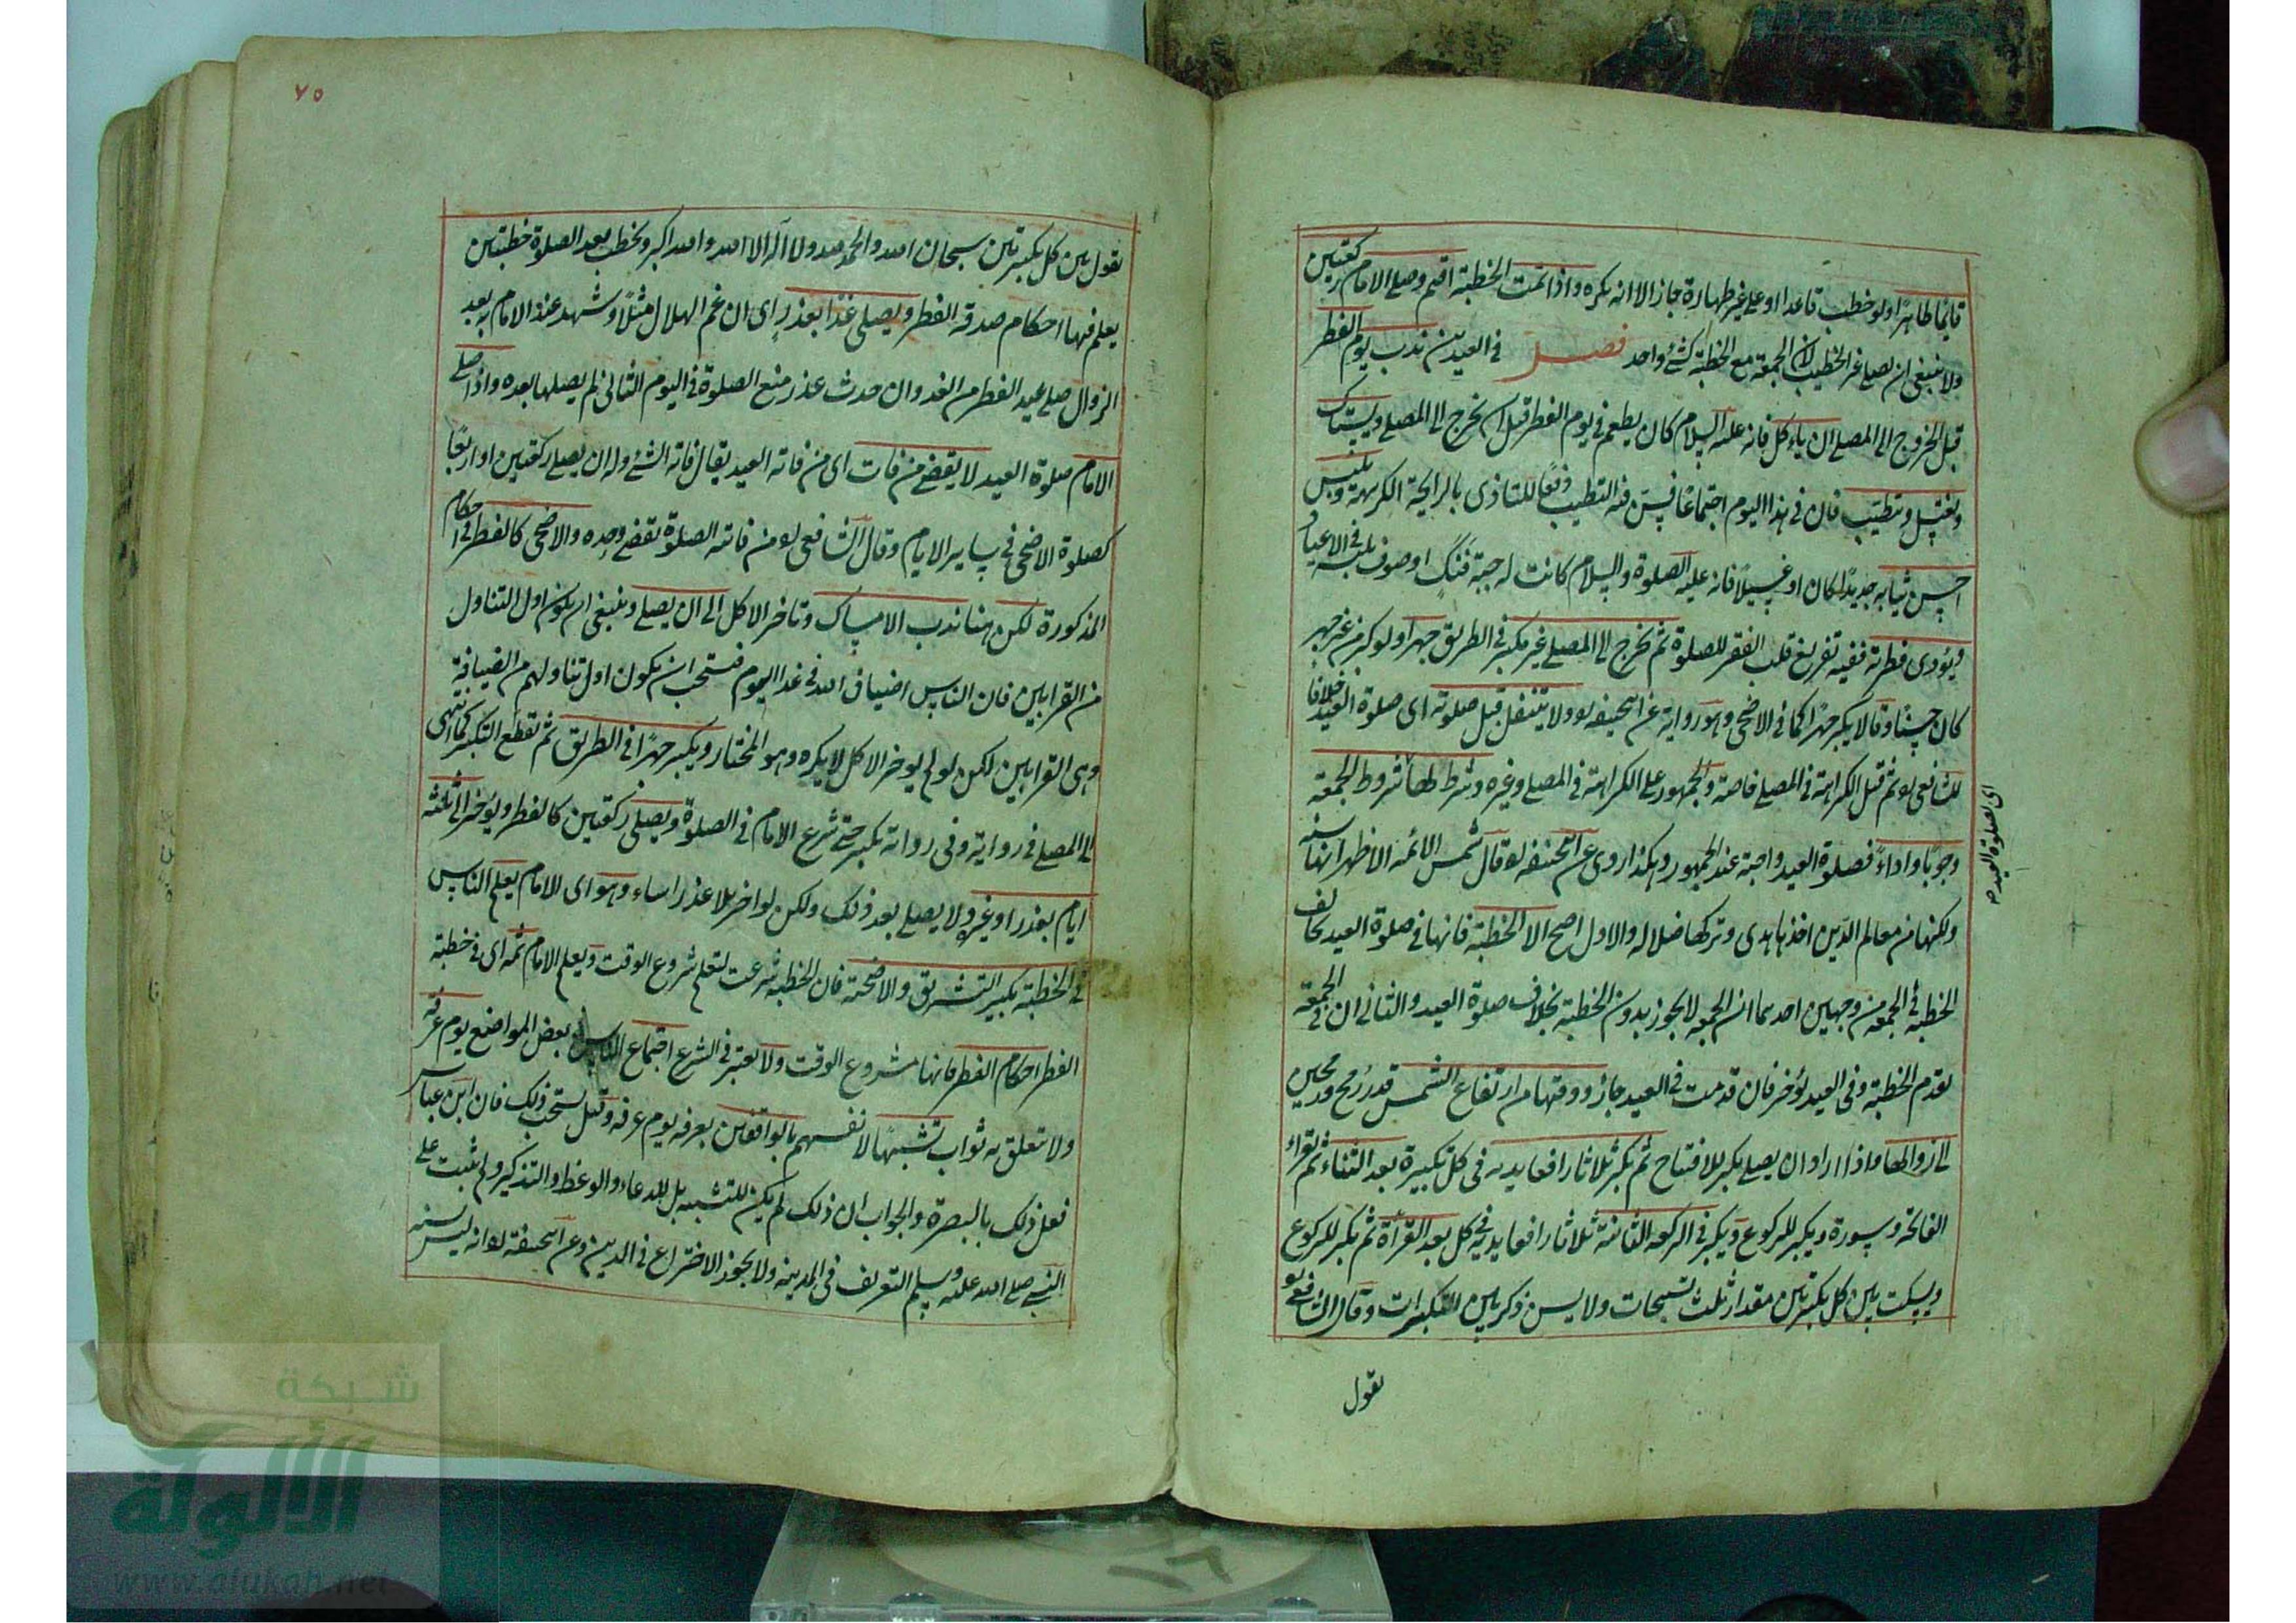 قايمًا طاهرًا ولو خطب قاعدا او على غير طهارة جاز الا انه يكره واذا تمت الخطبة اقيم وصلى الامام ركعتين
ولا ينبغي ان يصلي غير الخطيب لان الجمعة مع الخطبة كشئ واحد فصل في العيدين ندب يوم الفطر
قبل الخروج الى المصلى ان ياءكل فانه عليه السلام كان يطعم في يوم الفطر قبل ان يخرج الى المصلى ويستاك
ويغتسل ويتطيب فان في هذا اليوم اجتماعًا فيسن فيه التطيب دفعًا للتاذى بالرايحة الكريهة ويلبس
احسن ثيابه جديدًا كان او غسيلًا فانه عليه الصلوة والسلام كانت له جبة فنك او صوف يلبسه في الاعياد
ويؤدى فطرته ففيه تفريغ قلب الفقير للصلوة ثم يخرج الى المصلى غير مكبر في الطريق جهرا ولو كبر من غير جهر
كان حسنًا وقالا يكبر جهرًا كما في الاضحى وهو رواية عن ابيحنيفه ره ولا يتنفل قبل صلوته اى صلوة العيد خلافا
للشافعى ره ثم قيل الكراهة في المصلى خاصة والجمهور على الكراهة في المصلى وغيره وشرط لها شروط الجمعة
وجوبًا واداءً فصلوة العيد واجبة عند الجمهور وهكذا روى عن ابيحنيفه ره وقال شمس الائمه الاظهر انها سنه
ولكنها من معالم الدين اخذها هدى وتركها ضلاله والاول اصح الا الخطبة فانها في صلوة العيد تخالف
الخطبه في الجمعه من وجهين احدهما ان الجمعه لا يجوز بدون الخطبة بخلاف صلوة العيد والثاني ان في الجمعة
يقدم الخطبة وفى العيد يؤخر فان قدمت في العيد جاز ووقتها من ارتفاع الشمس قدر رمح ورمحين
الى زوالها واذا اراد ان يصلى يكبر للافتتاح ثم يكبر ثلاثا رافعا يديه في كل تكبيرة بعد الثناء ثم يقراء
الفاتحة وسورة ويكبر للركوع ويكبر في الركعه الثانية ثلاثا رافعا يديه في كل بعد القرأة ثم يكبر للركوع
ويسكت بين كل تكبيرتين مقدار ثلث تسبيحات ولا يسن ذكر بين التكبيرات وقال الشافعى ره
يقول
اى لصلوة العيد
٧٥
يقول بين كل تكبيرتين سبحان الله والحمد لله ولا اله الا الله والله اكبر ويخطب بعد الصلوة خطبتين
يعلم فيها احكام صدقة الفطر ويصلى غدًا بعذر اى ان غم الهلال مثلًا وشهد عند الامام به بعد
الزوال صلى عيد الفطر من الغد وان حدث عذر منع الصلوة في اليوم الثانى لم يصلها بعده واذا صلى
الامام صلوة العيد لا يقضى من فات اى من فاته العيد يقال فاته الشئ وله ان يصلى ركعتين او اربعًا
كصلوة الاضحى في ساير الايام وقال الشافعى ره من فاتته الصلوة يقضى وحده والاضحى كالفطر في احكام
المذكورة لكن ههنا ندب الامساك وتاخر الاكل الى ان يصلى وينبغى ان يكون اول التناول
من القرابين فان الناس اضياف الله في غد اليوم فيستحب ان يكون اول تناولهم من الضيافة
وهى القرابين لكن لو لم يوخر الاكل لا يكره وهو المختار ويكبر جهرًا في الطريق ثم يقطع التكبير كما انتهى
الى المصلى في رواية وفى رواية يكبر حتى شرع الامام في الصلوة ويصلى ركعتين كالفطر ويؤخر الى ثلثة
ايام بعذر او غيره ولا يصلى بعد ذلك ولكن لو اخر بلا عذر اساء وهو اى الامام يعلم الناس
في الخطبة تكبير التشريق والاضحية فان الخطبه شرعت لتعلم شروع الوقت ويعلم الامام ثمه اى في خطبة
الفطر احكام الفطر فانها مشروع الوقت ولا يعتبر في الشرع اجتماع الناس بعض المواضع يوم عرفه
ولا تعلق به ثواب تشبهًا لانفسهم بالواقفين بعرفه يوم عرفه وقيل يستحب ذلك فان ابن عباس
فعل ذلك بالبصرة والجواب ان ذلك لم يكن للتشبيه بل للدعاء والوعظ والتذكير ولم يثبت على
النبى صلى الله عليه وسلم التعريف في المدينه ولا يجوز الاختراع في الدين وعن ابيحنيفه ره انه ليس سنه
شبكة
الألوكة
www.alukah.net